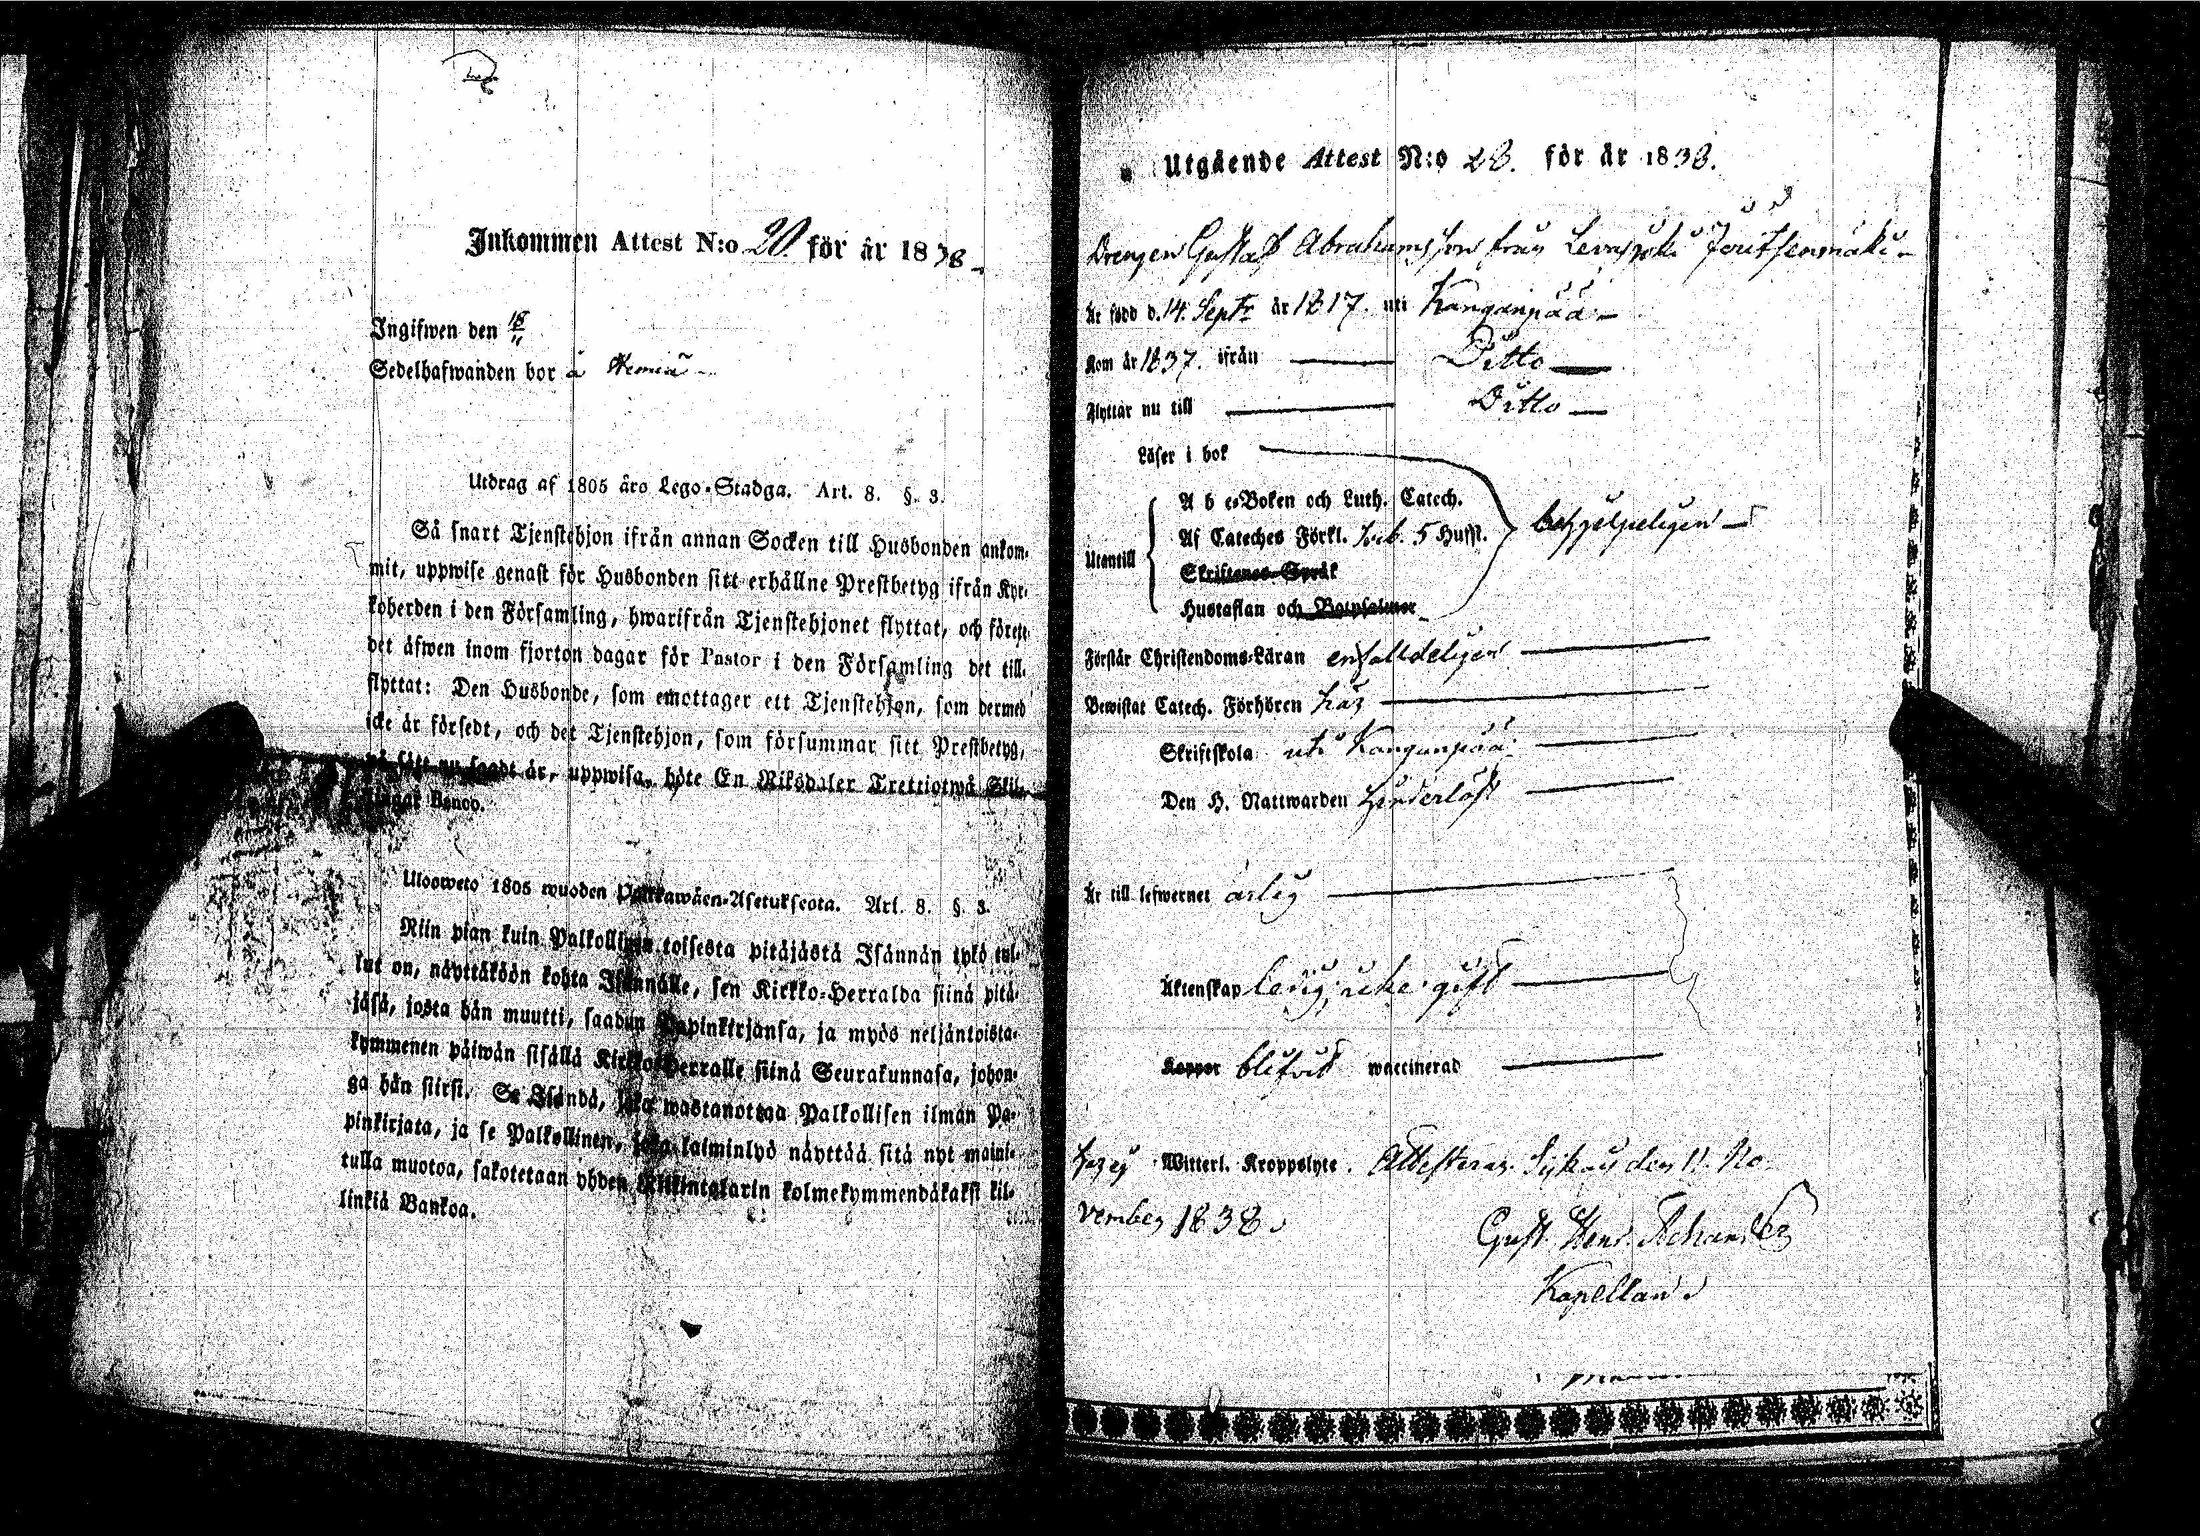 Inkommen Attest N:o 20. för år 1838
Ingifwen den 18/11
Sedelhafwanden bor å
Utdrag af 1805 års Lego-Stadga. Art. 8. §. 3.
Så snart Tjenstehjon ifrån annan Socken till Husbonden ankom-
mit, uppwise genast för Husbonden sitt erhållne Prestbetyg ifrån Kyr-
koherden i den Församling, hwarifrån Tjenstehjonet flyttat, och förete
det äfwen inom fjorton dagar för Pastor i den Församling det till-
flyttat: Den Husbonde, som emottager ett Tjenstehjon, som dermed
icke är försedt, och det Tjenstehjon, som försummar sitt Prestbetyg,
på sätt nu sagdt är, uppwisa, böte En Riksdaler Trettiotwå Skil-
lingar Banco.
Ulosweto 1805 wuoden Palkkawäen-Asetuksesta. Art. 8. §. 3.
Niin pian kuin Palkollinen toisesta pitäjästä Isännän tykö tul-
lut on, näyttäköön kohta Isännälle, sen Kirkko-Herralda siinä pitä-
jäsä, josta hän muutti, saadun Papinkirjansa, ja myös neljäntoista-
kymmenen päiwän sisällä Kirkko-Herralle siinä Seurakunnasa, johon-
ga hän siirsi. Se Isändä, joka wastanottaa Palkollisen ilman Pa-
pinkirjata, ja se Palkollinen, joka laiminlyö näyttää sitä nyt maini-
tulla muotoa, sakotetaan yhden Riikintalarin kolmekymmendäkaksi kil-
linkiä Bankoa.
Utgående Attest N:o 28. för år 1838.
Drengen Gustaf Abrahamsson från
Är född d. 14. Sept: år 1817. uti Kanganpää
Kom år 1837. ifrån Ditto
Flyttar nu till Ditto
Läser i bok
Utantill
A b c-Boken och Luth. Catech.
Af Cateches Förkl. 5 Hufst.
Skriftenes Språk
Hustaflan och Botpsalmer
Förstår Christendoms-Läran enfalldeligen
Bewistat Catech. Förhören
Skriftskola uti Kanganpää
Den H. Nattwarden hinderlöst
Är till lefwernet ärlig
Äktenskap ledig, icke gift
Koppor blifvit waccinerad
Ingen Witterl. Kroppslyte. Attesterar den 11. No-
vember 1838.
Gust. Henr.
Kapellan